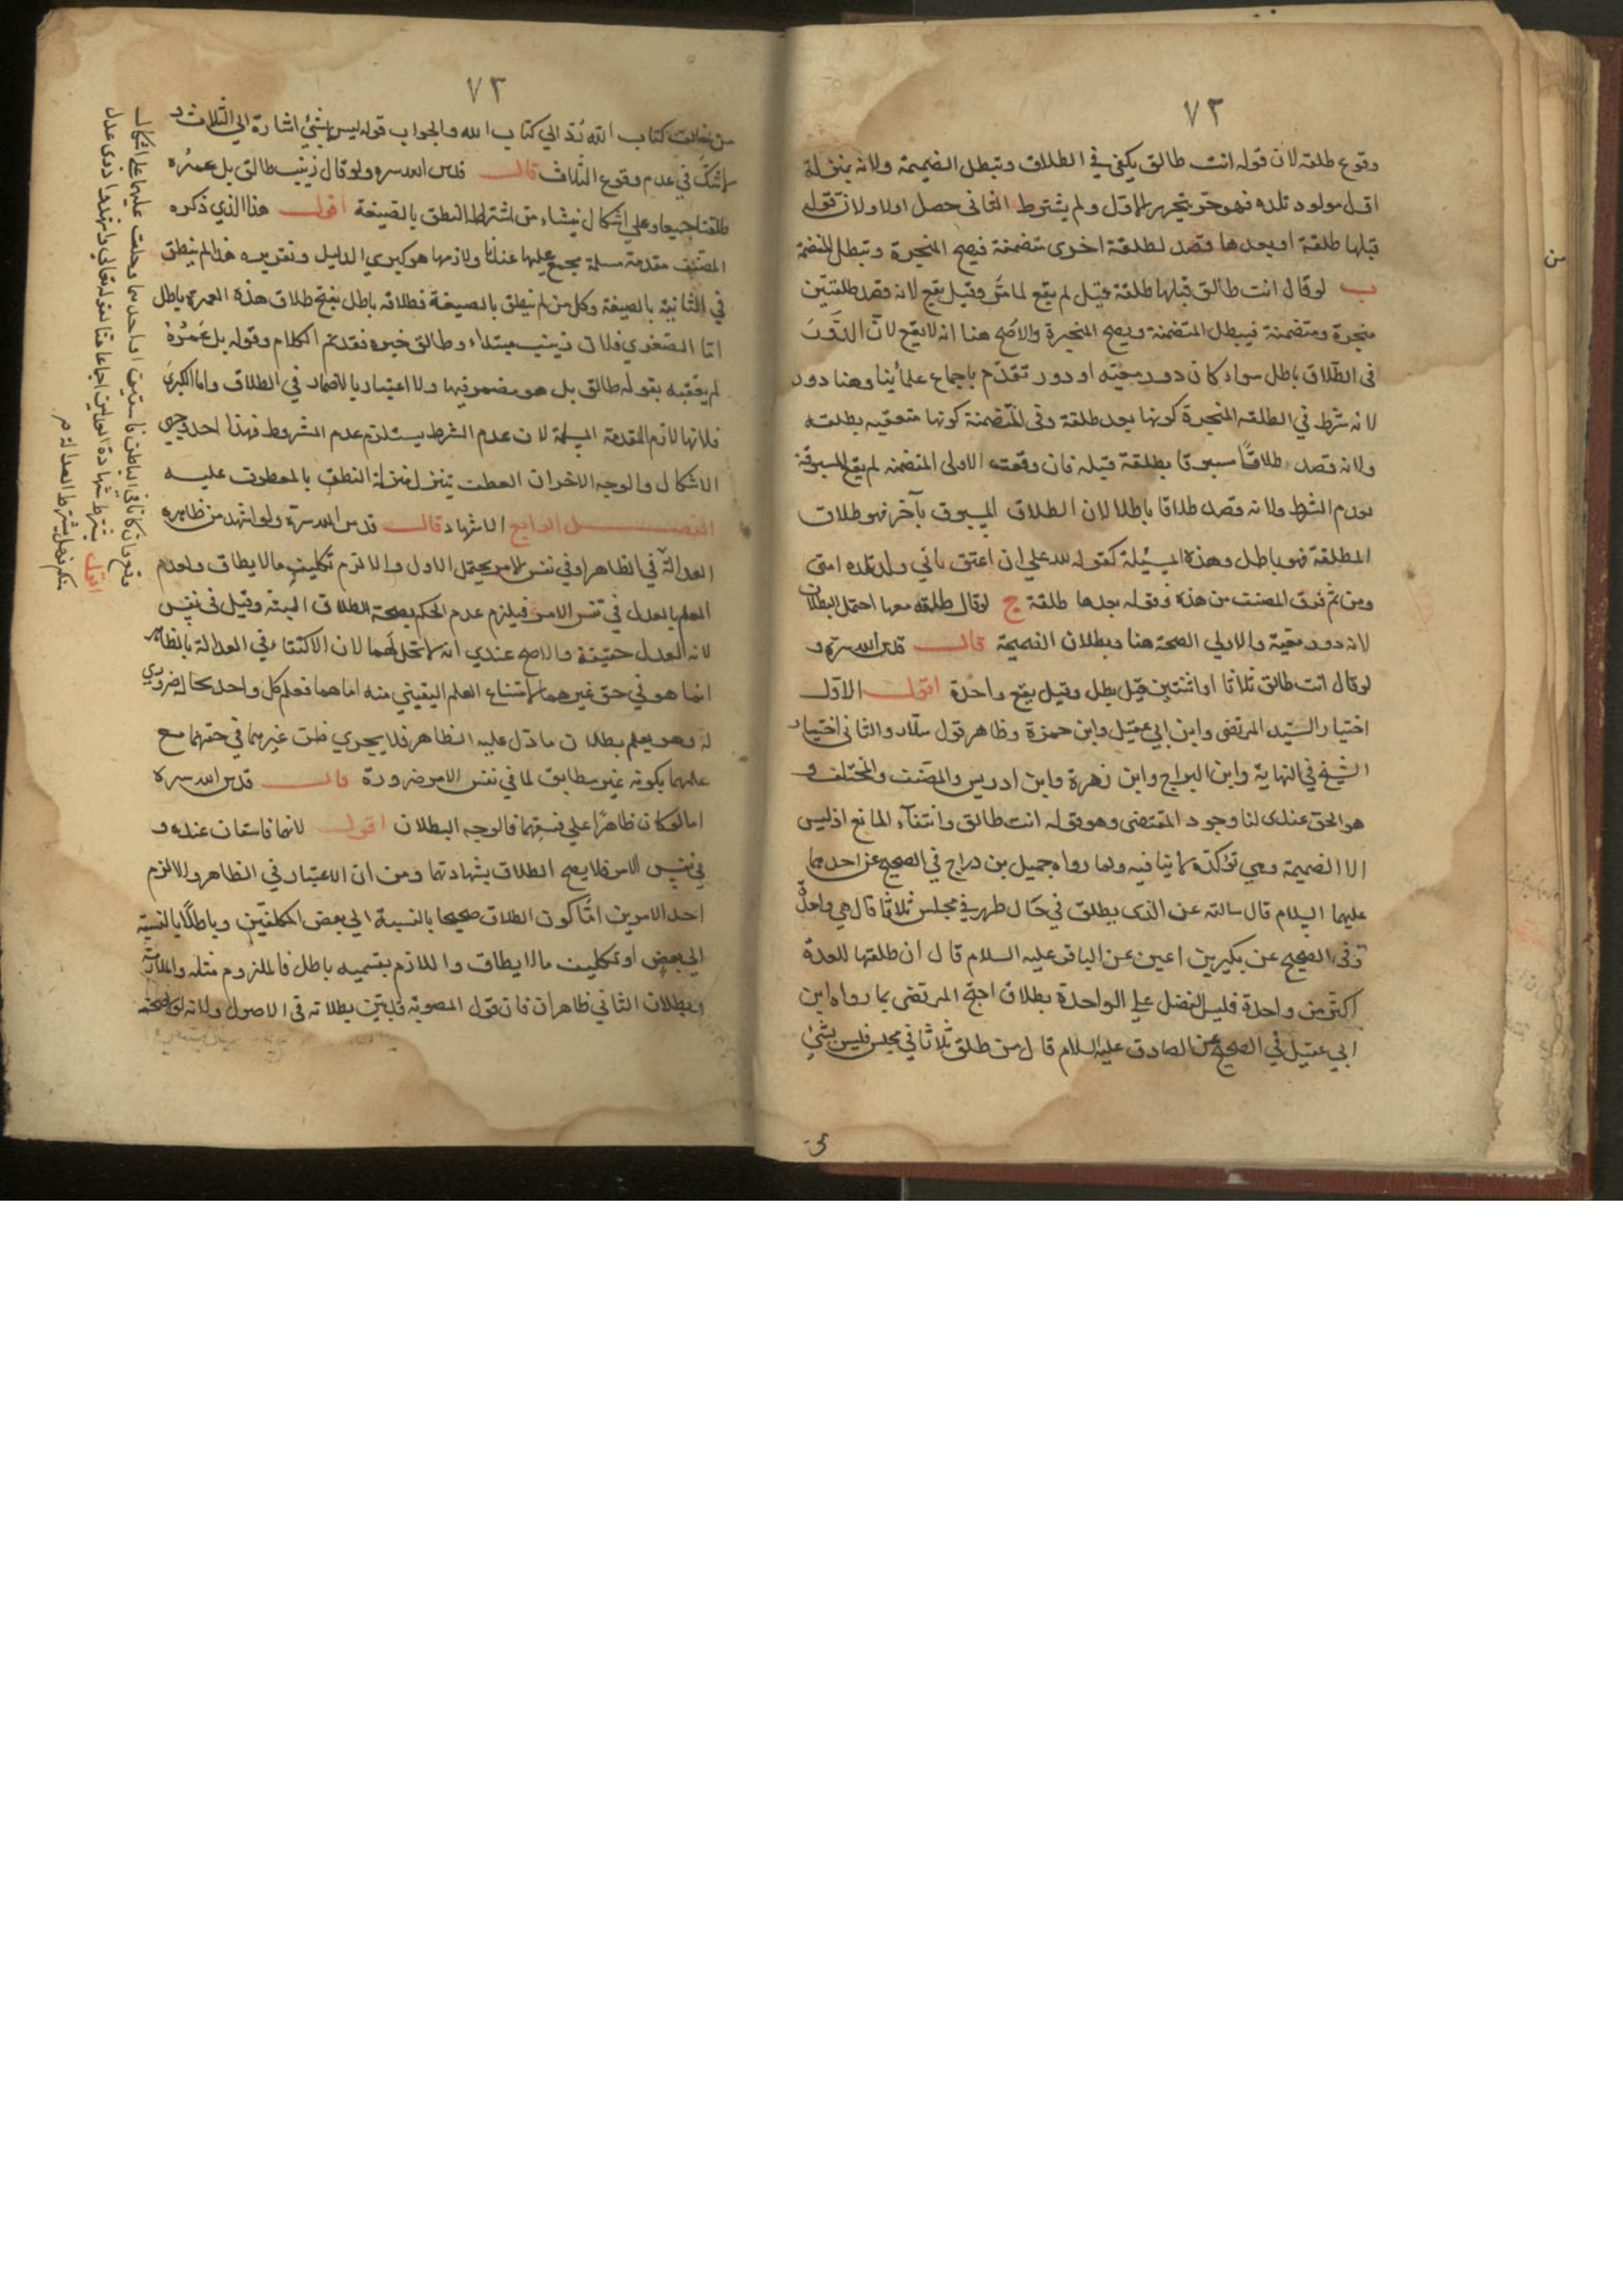 ٧٣
وقوع طلقه لان قوله انت طالق يكفي في الطلاق وتبطل الضميمة ولانه بمنزلة
اول مولود تلده فهو حر بتحرير الاول ولم يشترط الثاني حصل اولا ولان قوله
قبلها طلقة او بعدها قصد لطلقة اخرى متضمنة فيصح المنجزة وتبطل المتضمنة
ب لو قال انت طالق قبلها طلقة قيل لم يقع لما مر وقيل يقع لانه قصد طلقتين
منجزة ومتضمنة فيبطل المتضمنة ويصح المنجزة والاصح هنا انه لا يقع لان الدور
في الطلاق باطل سواء كان دور معيته او دور تقدم باجماع علمائنا وهنا دور
لانه شرط في الطلقة المنجزة كونها بعد طلقة وفي المتضمنة كونها متعقبه بطلقه
ولانه قصد طلاقا مسبوقا بطلقة قبله فان وقعت الاولى المتضمنه لم يقع المسبوقة
لعدم الشرط ولانه قصد طلاقا باطلا لان الطلاق المسبوق بآخر فهو طلاق
المطلقة فهو باطل وهذه المسئلة كقوله لله علي ان اعتق ثاني ولد تلده امتى
ومن ثم فرق المصنف من هذه وقوله بعدها طلقة ج لو قال طلقه معها احتمل البطلان
لانه دور معية والاولى الصحة هنا وبطلان الضميمة قال قدس الله سره و
لو قال انت طالق ثلاثا او اثنتين قيل يطل وقيل يقع واحدة اقول الاول
اختيار السيد المرتضى وابن ابي عقيل وابن حمزة وظاهر قول سلار والثاني اختيار
الشيخ في النهاية وابن البراج وابن زهرة وابن ادريس والمصنف والمختلف و
هو الحق عندى لنا وجود المقتضى وهو قوله انت طالق وانتفاء المانع اذ ليس
الا الضميمة وهي تؤكده لا ينافيه ولما رواه جميل بن دراج في الصحيح عن احدهما
عليهما السلام قال سالته عن الذى يطلق في حال طهر في مجلس ثلاثا قال هي واحدة
وفي الصحيح عن بكير بن اعين عن الباقر عليه السلام قال ان طلقها للعدة
اكثر من واحدة فليس الفضل على الواحدة بطلاق احتج المرتضى بما رواه ابن
ابي عقيل في الصحيح عن الصادق عليه السلام قال من طلق ثلاثا في مجلس فليس بشيء
من
٧٣
من خالف كتاب الله رد الى كتاب الله والجواب قوله ليس بشيء اشارة الى الثلاث و
لا شك في عدم وقوع الثلاث قال قدس الله سره ولو قال زينب طالق بل عمره
طلقتا جميعا وعلى اشكال ينشاء من اشتراط النطق بالصيغة اقول هذا الذي ذكره
المصنف مقدمة مسلمة مجمع عليها عندنا ولازمها هو كبرى الدليل وتقريره هذا لم ينطق
في الثانية بالصيغة وكل من لم ينطق بالصيغة فطلاقه باطل ينتج طلاق هذه العمرة باطل
اما الصغرى فلان زينب مبتداء وطالق خبره فقد تم الكلام وقوله بل عمرة
لم يعقبه بقوله طالق بل هو مضمر فيها ولا اعتبار بالاضمار في الطلاق واما الكبرى
فلانها لازم المقدمة المسلمة لان عدم الشرط يستلزم عدم المشروط فهذا احد وجهي
الاشكال والوجه الاخر ان العطف يتنزل منزلة النطق بالمعطوف عليه
الفصل الرابع الاشهاد قال قدس الله سره ولو اشهد من ظاهره
العدالة في الظاهر او في نفس الامر يحتمل الاول والا لزم تكليف مالا يطاق ولعدم
العلم بالعدل في نفس الامر فيلزم عدم الحكم بصحة الطلاق البتة وقيل في نفس
لانه العدل حقيقة والاصح عندي انه لا تحل لهما لان الاكتفا في العدالة بالظاهر
انما هو في حق غيرهما لامتناع العلم اليقيني منه اما هما فعلم كل واحد بحاله ضروري
له وهو يعلم بطلان ما دل عليه الظاهر فلا يجري ظن غيرهما في حقهما مع
علمهما بكونه غير مطابق لما في نفس الامر ضرورة قال قدس الله سره
اما لو كان ظاهرا على فسقهما فالوجه البطلان اقول لانهما فاسقان عنده و
في نفس الامر فلا يصح الطلاق بشهادتهما ومن ان الاعتبار في الظاهر والا لزم
احد الامرين اما كون الطلاق صحيحا بالنسبة الى بعض المكلفين وباطلا بالنسبة
الى بعض او تكليف مالا يطاق واللازم بقسميه باطل فالملزوم مثله والملازمة
وبطلان الثاني ظاهران فان قول المصوبة فلتبين بطلانه في الاصول ولانه
وقع وان كانا في الباطن فاسقين او احدهما وحلت عليهما على اشكال
اقول يشترط شهادة العدلين اجماعا منا لقوله تعالى واشهدوا ذوى عدل
منكم فهل يشترط العدالة م